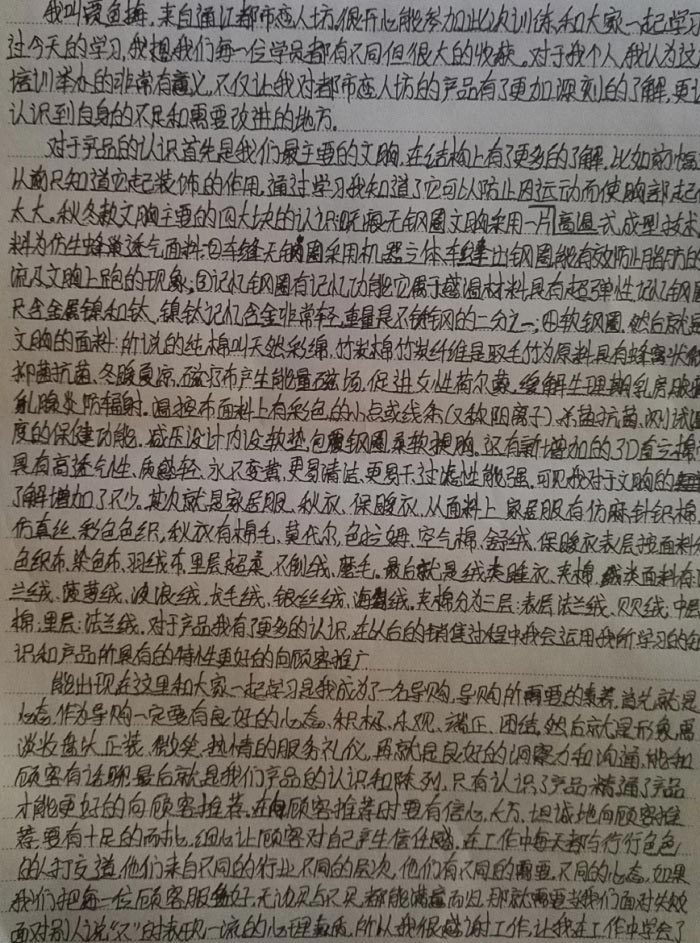 我叫夏鱼梅,来自通江都市恋人坊,很开心能参加此次训练,和大家一起学习
过今天的学习,我想我们每一位学员都有不同但很大的收获。对于我个人,我认为这
培训举办的非常有意义,不仅让我对都市恋人坊的产品有了更加深刻的了解,更让
认识到自身的不足和需要改进的地方。
对于产品的认识首先是我们最主要的文胸,在结构上有了更多的了解,比如前
从前只知道它起装饰的作用,通过学习我知道了它可以防止因运动而使胸部起
太大。秋冬款文胸主要的四大块的认识:无钢圈文胸采用一片高温式成型技术
料为仿生蜂巢透气面料;②车缝无钢圈采用机器立体车缝出钢圈能有效防止脂肪的
流及文胸上跑的现象;③记忆钢圈有记忆功能它属于感温材料具有超弹性记忆钢圈
尺含金属镍和钛,镍钛记忆合金非常轻,重量是不锈钢的二分之一;④软钢圈,然后就是
文胸的面料:所说的纯棉叫天然彩棉,竹炭棉竹炭纤维是取毛竹为原料具有蜂窝状
抑菌抗菌、冬暖夏凉,磁疗布产生能量磁场,促进女性荷尔蒙,缓解生理期乳房胀
乳腺炎防辐射。温控布面料上有彩色的小点或线条(又软阴离子),杀菌抗菌、测试温
度的保健功能。减压设计内设软垫,包覆钢圈柔软提胸。还有新增加的3D直立棉
具有高透气性、质感轻、永不变黄、更易清洁、更易干、过滤性能强,可见我对于文胸的
了解增加了不少。其次就是家居服、秋衣、保暖衣,从面料上家居服有仿麻、针织棉
仿真丝、彩色色织,秋衣有棉毛、莫代尔、色拉姆、空气棉、舒绒,保暖衣表层按面料分
色织布、染色布、羽绒布,里层超柔、不倒绒、磨毛。最后就是绒类睡衣、夹棉,绒类面料有
兰绒、菠萝绒、波浪绒、长毛绒、银丝绒、海绒。夹棉分为三层:表层法兰绒、贝贝绒;中层
棉;里层:法兰绒。对于产品我有了更多的认识,在以后的销售过程中我会运用我所学习的
识和产品所具有的特性更好的向顾客推广
能出现在这里和大家一起学习是我成为了一名导购,导购所需要的素养,首先就是
心态,作为导购一定要有良好的心态、积极、乐观、端正、团结,然后就是形象需
淡妆盘头正装、微笑、热情的服务礼仪,再就是良好的洞察力和沟通,能和
顾客有话聊,最后就是我们产品的认识和陈列,只有认识了产品精通了产品
才能更好的向顾客推荐。在向顾客推荐时要有信心,大方、坦诚地向顾客推
荐,要有十足的耐心,细心让顾客对自己产生信任感。在工作中每天都与行行色色
的人打交道,他们来自不同的行业不同的层次,他们有不同的需要,不同的心态,如果
我们把每一位顾客服务好,无边贝与不贝,都能满意而归,那就需要当我们面对失败
面对别人说“不”时表现一流的心理素质,所以我很感谢工作,让我在工作中学会了